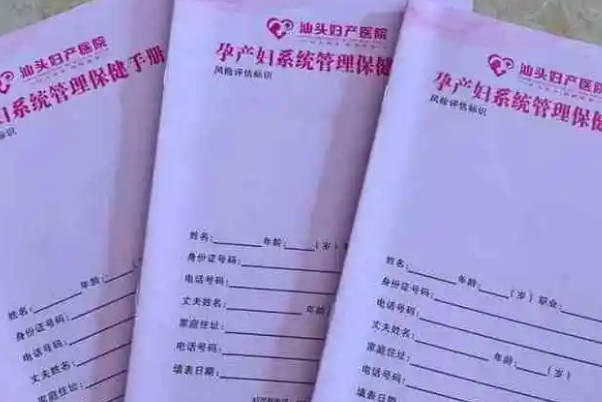 汕头妇产医院
妇系统管理保健手册
标识
姓名:
年龄:
(岁)
身份证号码:
电话号码:
丈夫姓名:
家庭住址:
汕头妇产医院
孕产妇系统管理保健
风险评估标识
姓名:
年龄:
(岁)
身份证号码:
电话号码:
丈夫姓名:
年龄:
家庭住址:
电话号码:
填表日期:
汕头妇产医院
孕产妇系统管理保健
风险评估标识
姓名:
年龄:
(岁)
职业:
身份证号码:
电话号码:
丈夫姓名:
家庭住址:
电话号码:
填表日期: